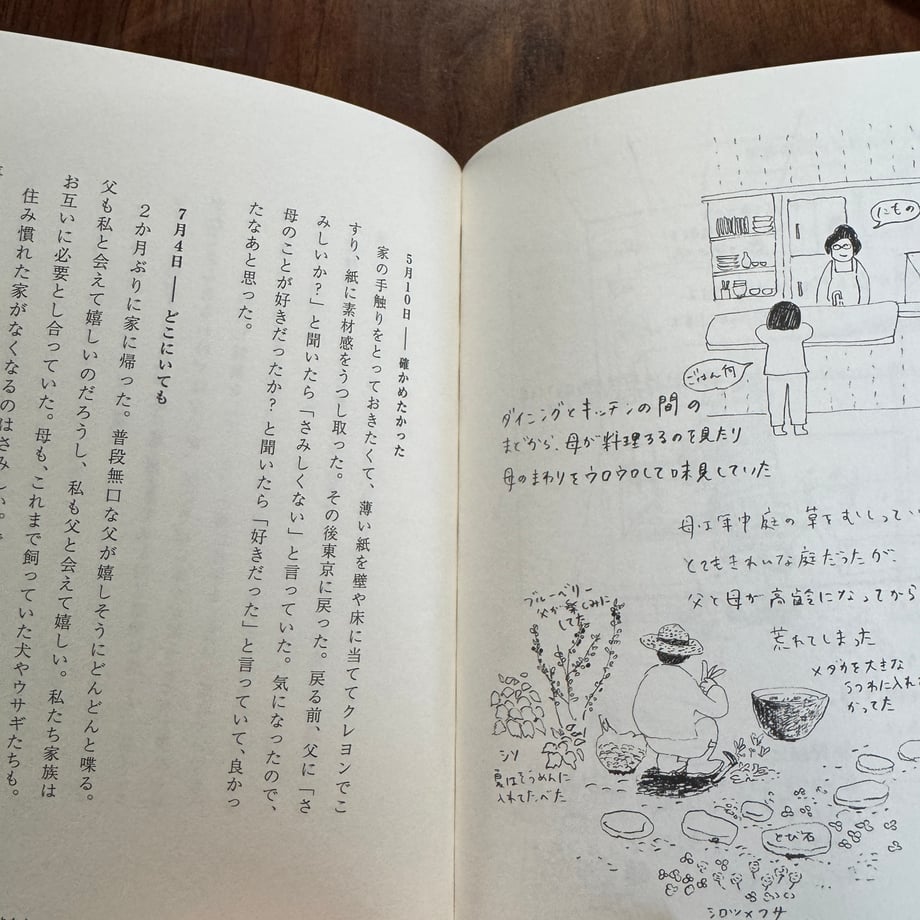 にもの
ごはん何
ダイニングとキッチンの間の
まどから、母が料理するのを見たり
母のまわりをウロウロして味見していた
母は年中庭の草をむしってい
とてもきれいな庭だったが、
父と母が高齢になってから
荒れてしまった
ブルーベリー
父が楽しみに
してた
メダカを大きな
うつわに入れ
かってた
シソ
夏はそうめんに
入れてたべた
とび石
シロツメクサ
5月10日――確かめたかった
家の手触りをとっておきたくて、薄い紙を壁や床に当ててクレヨンでこ
すり、紙に素材感をうつし取った。その後東京に戻った。戻る前、父に「さ
みしいか?」と聞いたら「さみしくない」と言っていた。気になったので、
母のことが好きだったか? と聞いたら「好きだった」と言っていて、良かっ
たなあと思った。
7月4日――どこにいても
2か月ぶりに家に帰った。普段無口な父が嬉しそうにどんどんと喋る。
父も私と会えて嬉しいのだろうし、私も父と会えて嬉しい。私たち家族は
お互いに必要とし合っていた。母も、これまで飼っていた犬やウサギたちも。
住み慣れた家がなくなるのはさみしい。